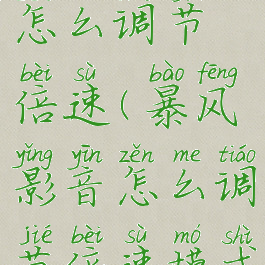 怎么调节
bèi sù bào fēng
倍速(暴风
yǐng yīn zěn me tiáo
影音怎么调
jié bèi sù mó shì
节倍速模式